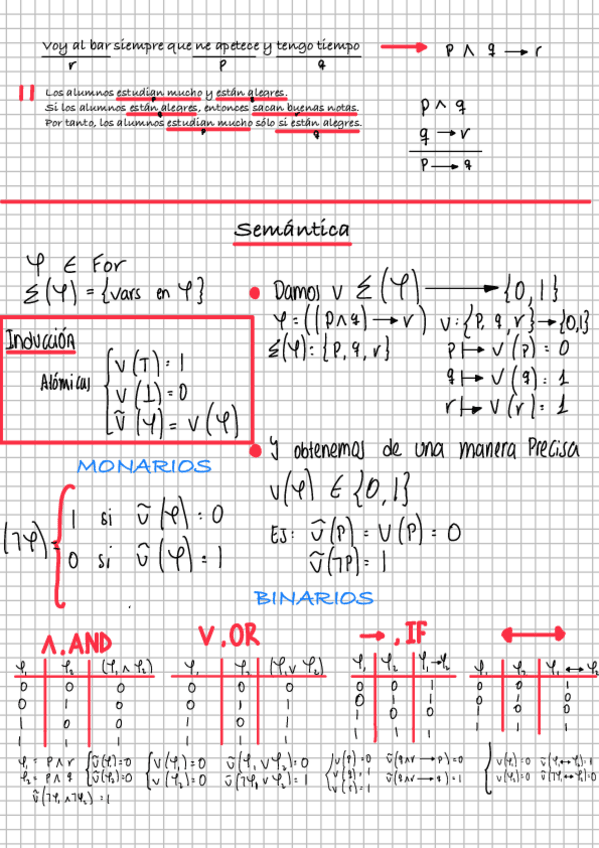 Voy al bar siempre que ne apetece y tengo tiempo → p ∧ q → r
r p q
Los alumnos estudian mucho y están alegres.
Si los alumnos están alegres, entonces sacan buenas notas.
Por tanto, los alumnos estudian mucho sólo si están alegres.
p q
p ∧ q
q → r
p → q
Semántica
φ ∈ For
Σ(φ) = {vars en φ}
Inducción
Atómicas
v(T) = 1
v(⊥) = 0
ṽ(φ) = v(φ)
Damos v Σ(φ) → {0,1}
φ = ((p∧q) → r) v: {p,q,r} → {0,1}
Σ(φ): {p,q,r}
p ↦ v(p) = 0
q ↦ v(q) = 1
r ↦ v(r) = 1
Y obtenemos de una manera Precisa
v(φ) ∈ {0,1}
EJ: ṽ(p) = v(p) = 0
ṽ(¬p) = 1
MONARIOS
(¬φ) =
1 si ṽ(φ) = 0
0 si ṽ(φ) = 1
BINARIOS
∧, AND
φ₁ φ₂ (φ₁ ∧ φ₂)
0 0 0
0 1 0
1 0 0
1 1 1
φ₁ = p∧r
φ₂ = p∧q
ṽ(φ₁)=0
ṽ(φ₂)=0
ṽ(¬φ₁ ∧ ¬φ₂) = 1
∨, OR
φ₁ φ₂ (φ₁ ∨ φ₂)
0 0 0
0 1 1
1 0 1
1 1 1
v(φ₁)=0 ṽ(φ₁ ∨ φ₂)=0
v(φ₂)=0 ṽ(¬φ₁ ∨ φ₂)=1
→, IF
φ₁ φ₂ φ₁→φ₂
0 0 1
0 1 1
1 0 0
1 1 1
v(p)=0 ṽ(q∧r → p)=0
v(q)=1 ṽ(q∧r → q)=1
↔
φ₁ φ₂ φ₁ ↔ φ₂
0 0 1
0 1 0
1 0 0
1 1 1
v(φ₁)=0 ṽ(φ₁↔φ₂)=1
v(φ₂)=0 ṽ(¬φ₁↔φ₂)=0